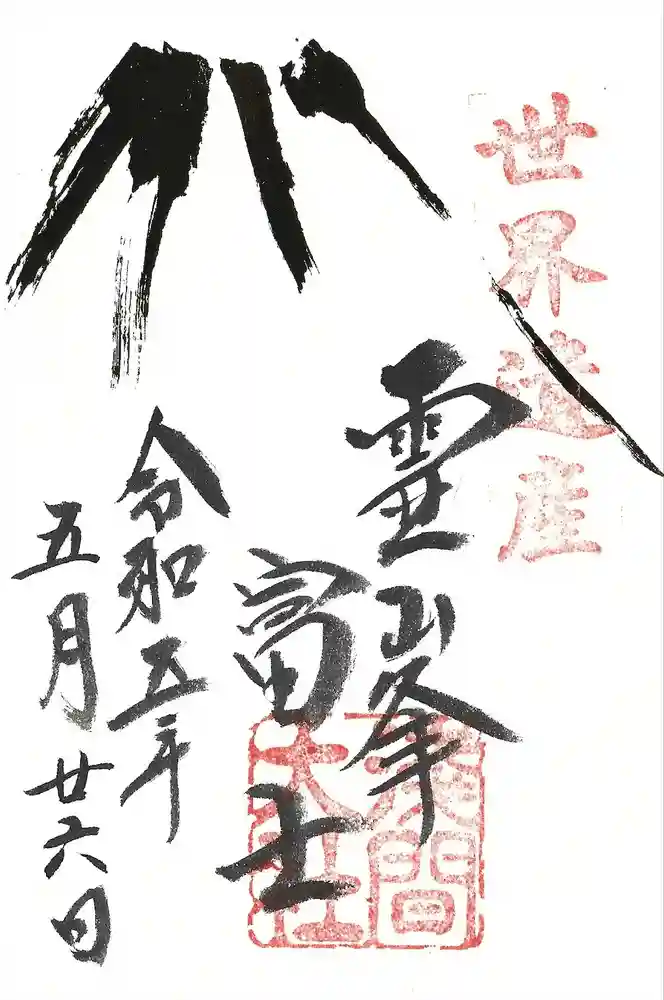 世界遺産
靈峯
富士
淺間
大社
令和五年
五月廿六日